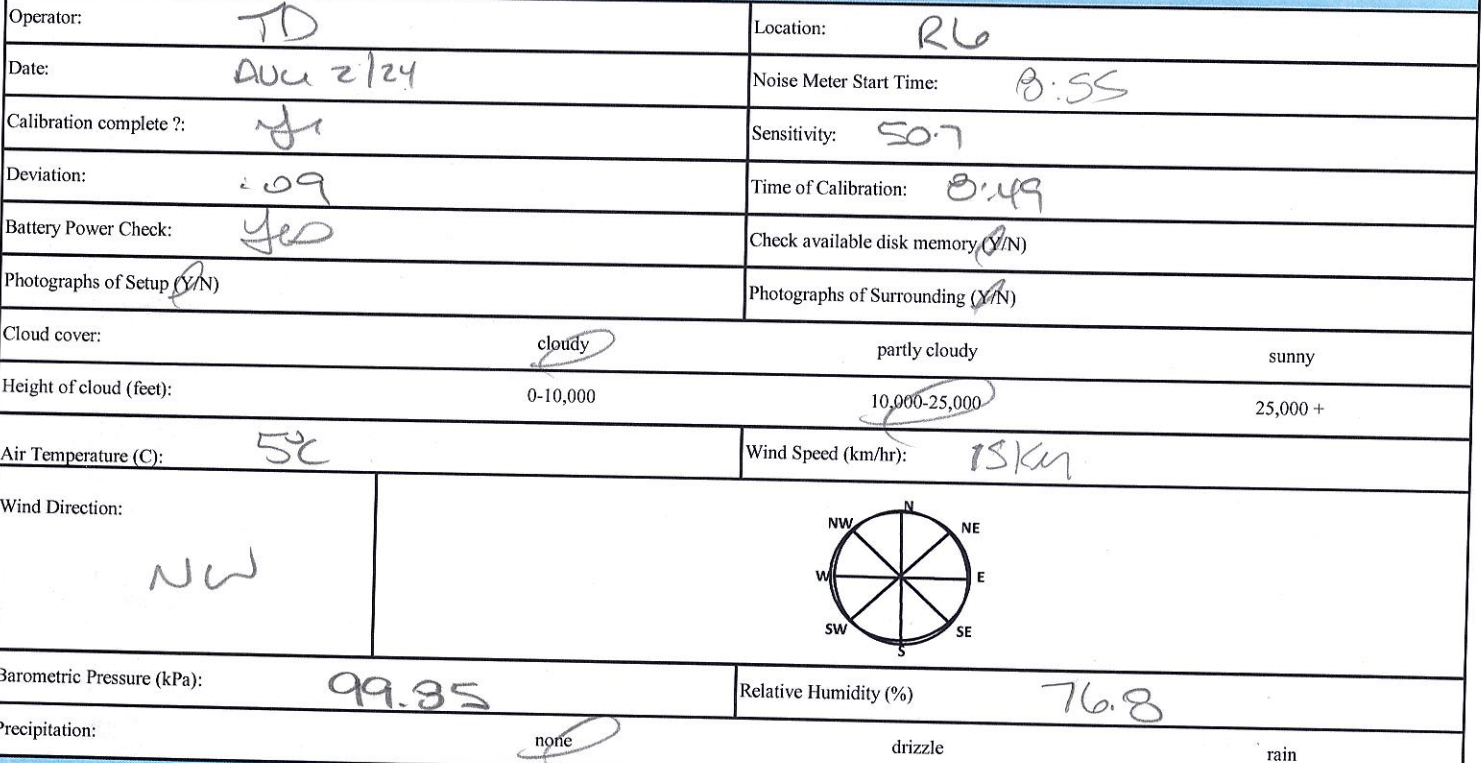 Operator: TD Location: R6
Date: AUG 2/24 Noise Meter Start Time: 8:55
Calibration complete ?: yes Sensitivity: 50.7
Deviation: .09 Time of Calibration: 8:49
Battery Power Check: yes Check available disk memory (Y/N)
Photographs of Setup (Y/N) Photographs of Surrounding (Y/N)
Cloud cover: cloudy partly cloudy sunny
Height of cloud (feet): 0-10,000 10,000-25,000 25,000 +
Air Temperature (C): 5°C Wind Speed (km/hr): 15 Km
Wind Direction:
N
NW NE
NW
W E
SW SE
S
Barometric Pressure (kPa): 99.85 Relative Humidity (%) 76.8
Precipitation: none drizzle rain